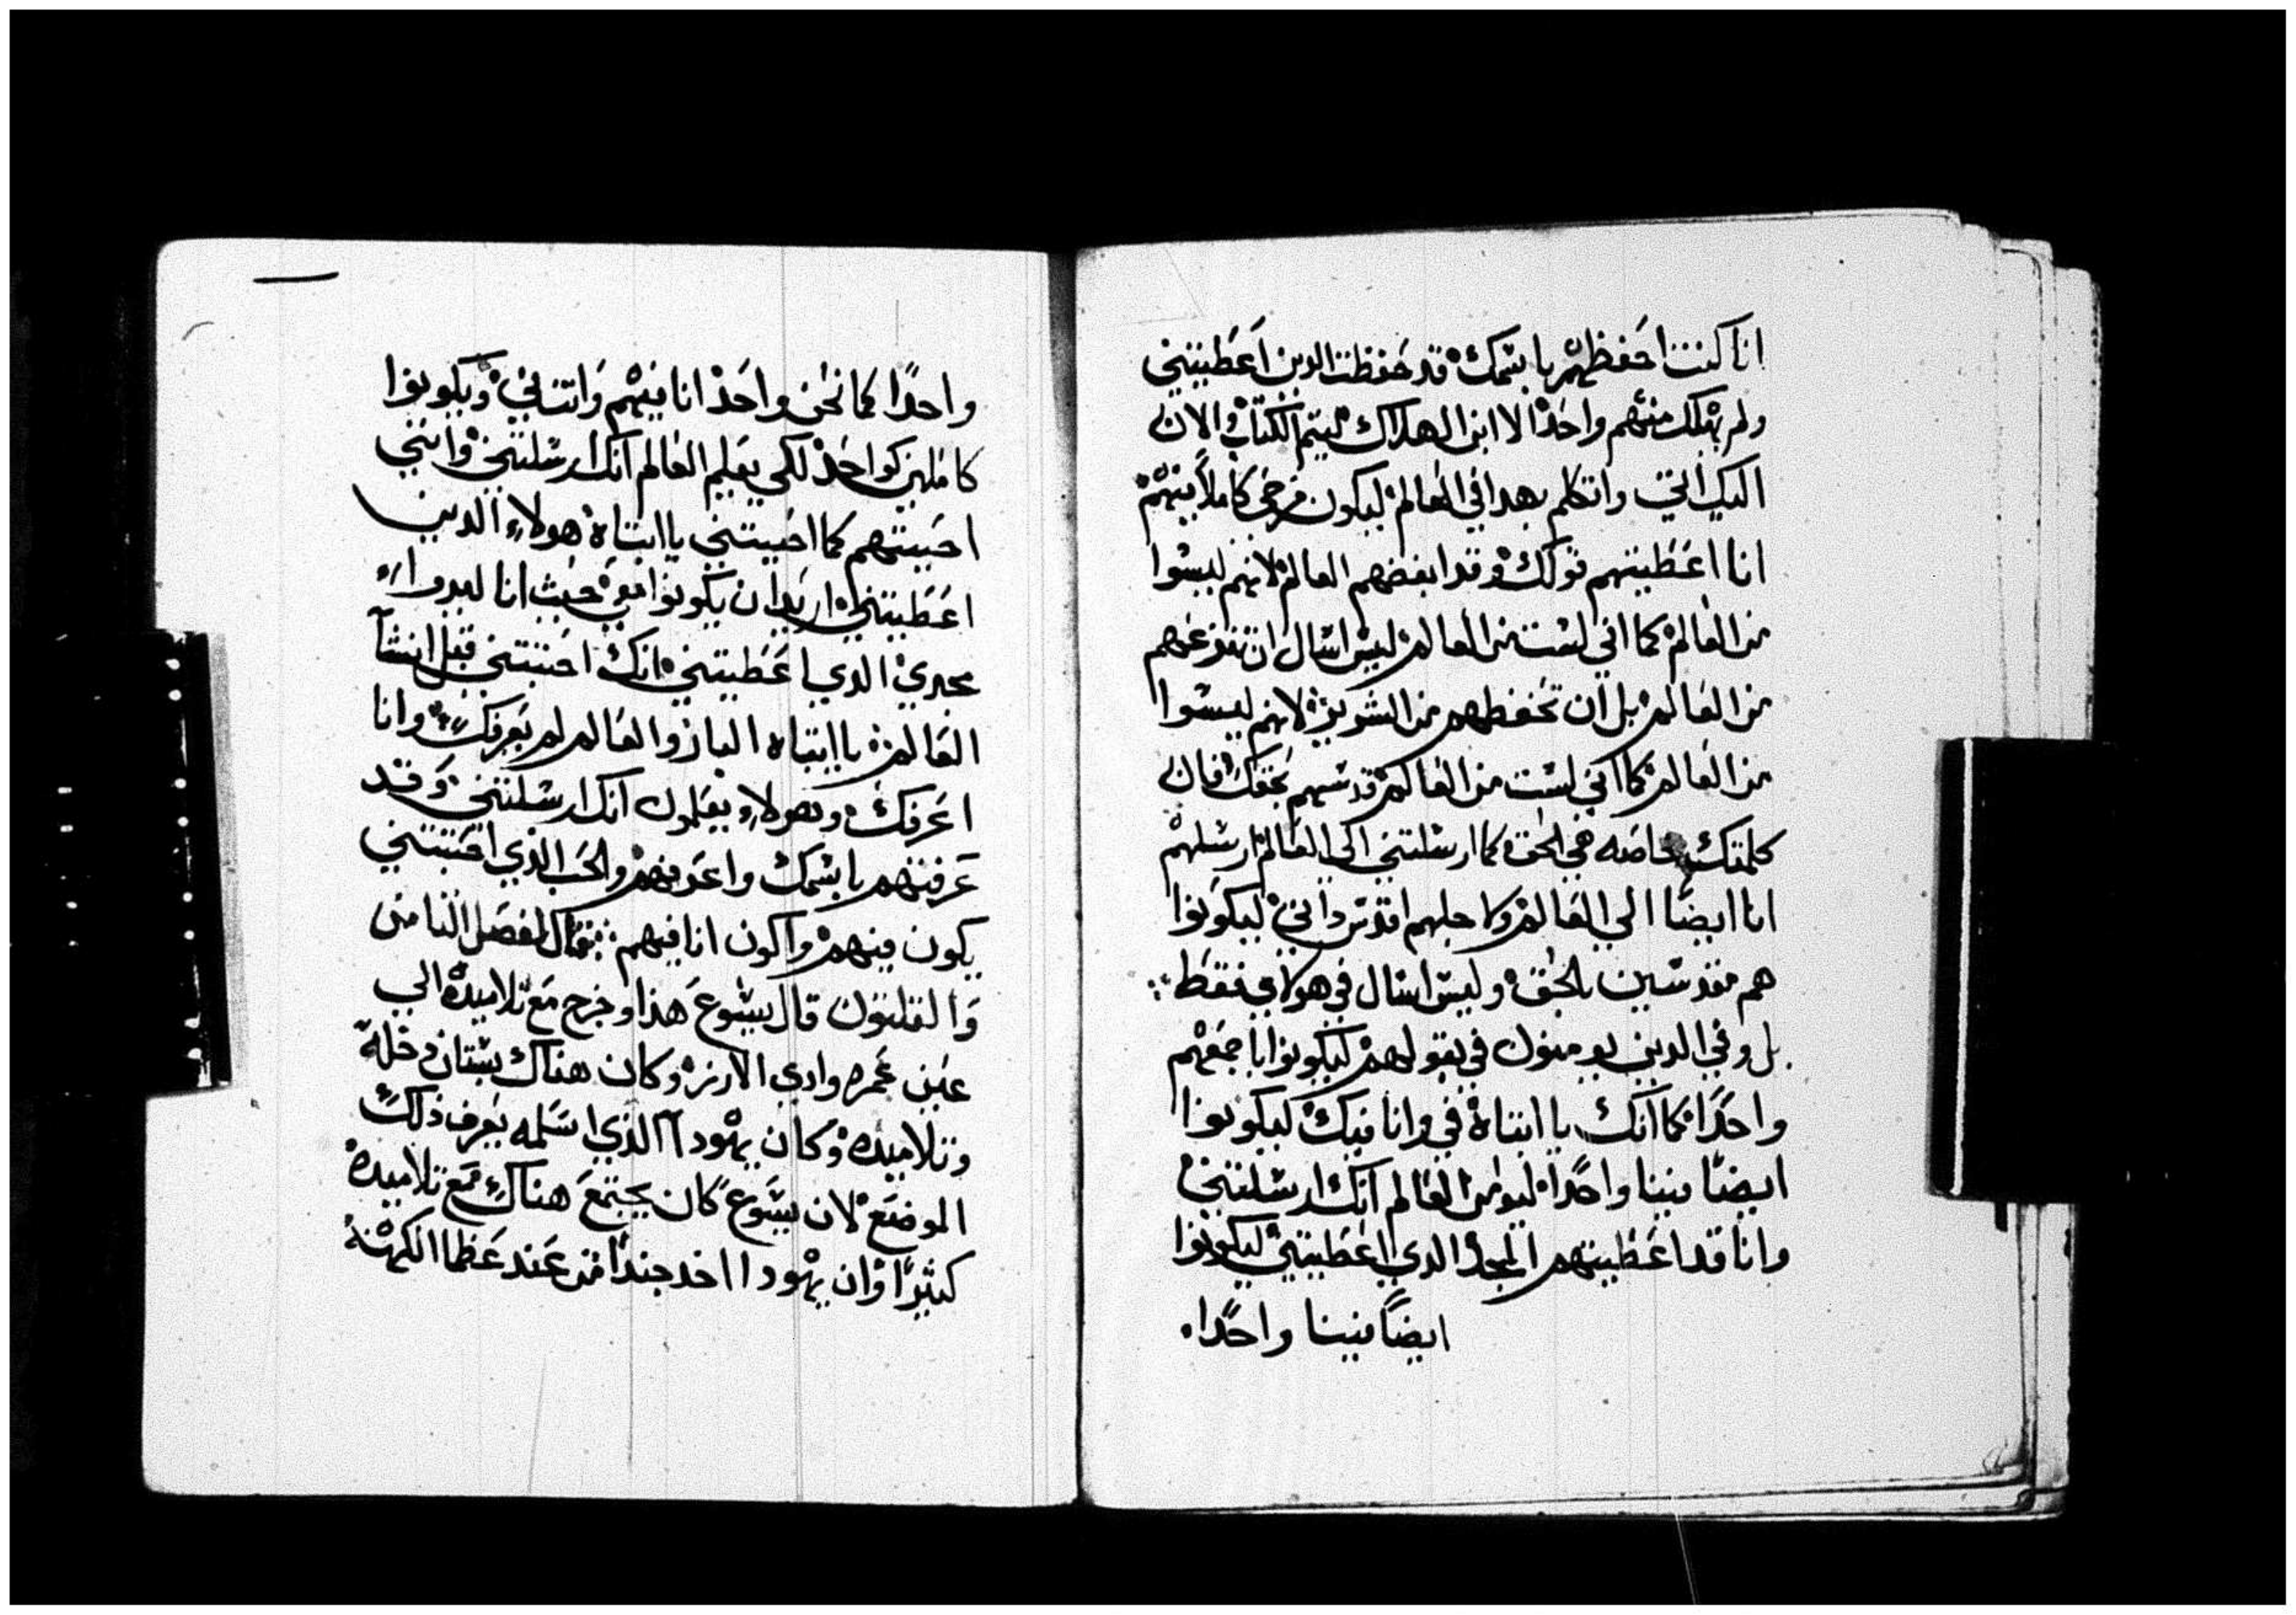 انا كنت احفظهم باسمك قد حفظت الدين اعطيتني
ولم يهلك منهم واحد الا ابن الهلاك ليتم الكتاب والان
اليك اتي واتكلم بهدا في العالم ليكون فرحي كاملا فيهم
انا اعطيتهم قولك وقد ابغضهم العالم لانهم ليسوا
من العالم كما اني لست من العالم ليس اسال ان تنزعهم
من العالم بل ان تحفظهم من الشرير لانهم ليسوا
من العالم كما اني لست من العالم قدسهم بحقك فان
كلمتك خاصه هي الحق كما ارسلتني الي العالم ارسلهم
انا ايضا الي العالم ولاجلهم اقدس داتي ليكونوا
هم مقدسين بالحق وليس اسال في هولاي فقط
بل وفي الدين يومنون في بقولهم ليكونوا باجمعهم
واحدا كما انك يا ابتاه في وانا فيك ليكونوا
ايضا فينا واحدا ليومن العالم انك ارسلتني
وانا قد اعطيتهم المجد الدي اعطيتني ليكونوا
ايضا فينا واحدا
واحدا كما نحن واحد انا فيهم وانت في ويكونوا
كاملين كواحد لكي يعلم العالم انك ارسلتني وانني
احببتهم كما احببتني يا ابتاه هولاء الدين
اعطيتني اريد ان يكونوا معي حيث انا ليروا
مجدي الدي اعطيتني انك احببتني قبل انشا
العالم يا ابتاه البار والعالم لم يعرفك وانا
اعرفك وهولاء يعلمون انك ارسلتني وقد
عرفتهم باسمك واعرفهم والحب الذي احببتني
يكون فيهم واكون انا فيهم الفصل الثامن
والثلثون قال يسوع هذا وخرج مع تلاميده الي
عبر غمره وادي الارز وكان هناك بستان دخله
وتلاميده وكان يهودا الذي اسلمه يعرف ذلك
الموضع لان يسوع كان يجتمع هناك مع تلاميده
كثيرا وان يهودا اخد جندا من عند عظما الكهنه